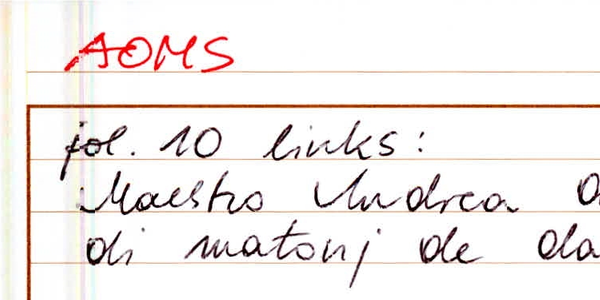 AOMS
fol. 10 links:
Maestro Andrea
di matonj de da